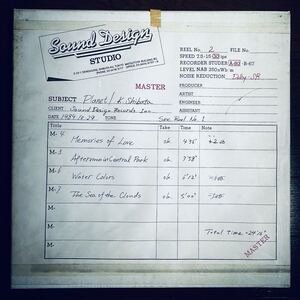 Sound Design
STUDIO
REEL No. 2 FILE No.
SPEED 7.5-15-30 ips
RECORDER STUDER A-80 B-67
LEVEL NAB 250nWb/m
NOISE REDUCTION Dolby-SR
MASTER
PRODUCER
ARTIST
SUBJECT Planet / K. Shibata
ENGINEER
CLIENT Sound Design Records Inc.
ASSISTANT
DATE 1989.10.29 TONE See Reel No. 1
Title Take Time Note
M-4 Memories of Love ok 4'35" +2dB
M-5 Afternoon in Central Park ok 7'58"
M-6 Water Colors ok 6'12"
M-7 The Sea of the Clouds ok 5'00"
M-
M-
M- Total Time
M-
MASTER